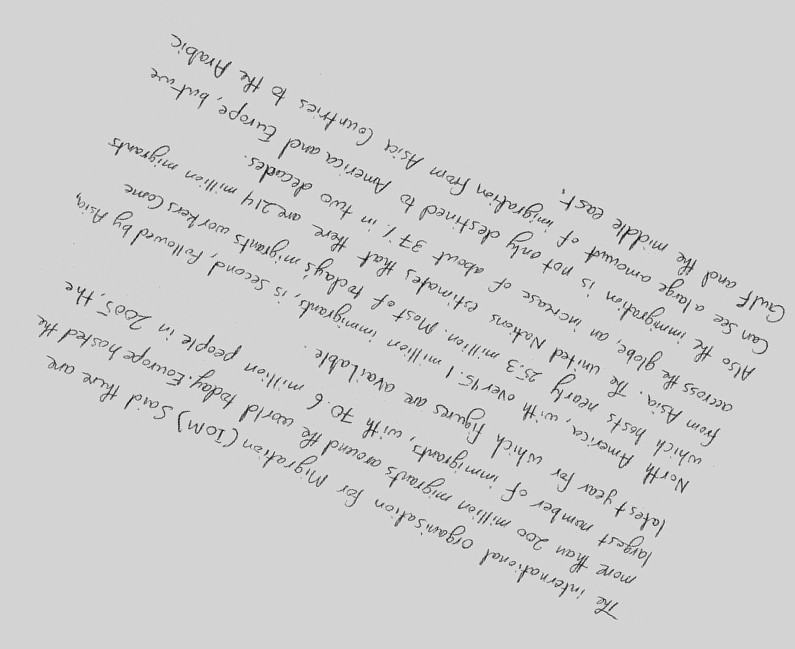 The international organisation for Migration (IOM) said there are
more than 200 million migrants around the world today. Eaurope hosted the
largest nomber of immigrants, with 70.6 million people in 2005, the
latest year for which figures are available.
North America, with over 45.1 million immigrants, is second, followed by Asia,
which hosts nearly 25.3 million. Most of today's migrants workers come
from Asia. The united Nations estimates that there are 214 million migrants
across the globe, an increase of about 37% in two decades.
Also the immigration is not only destined to America and Europe, but we
Can see a large amount of imigration from Asia Countries to the Arabic
Gulf and the middle east.